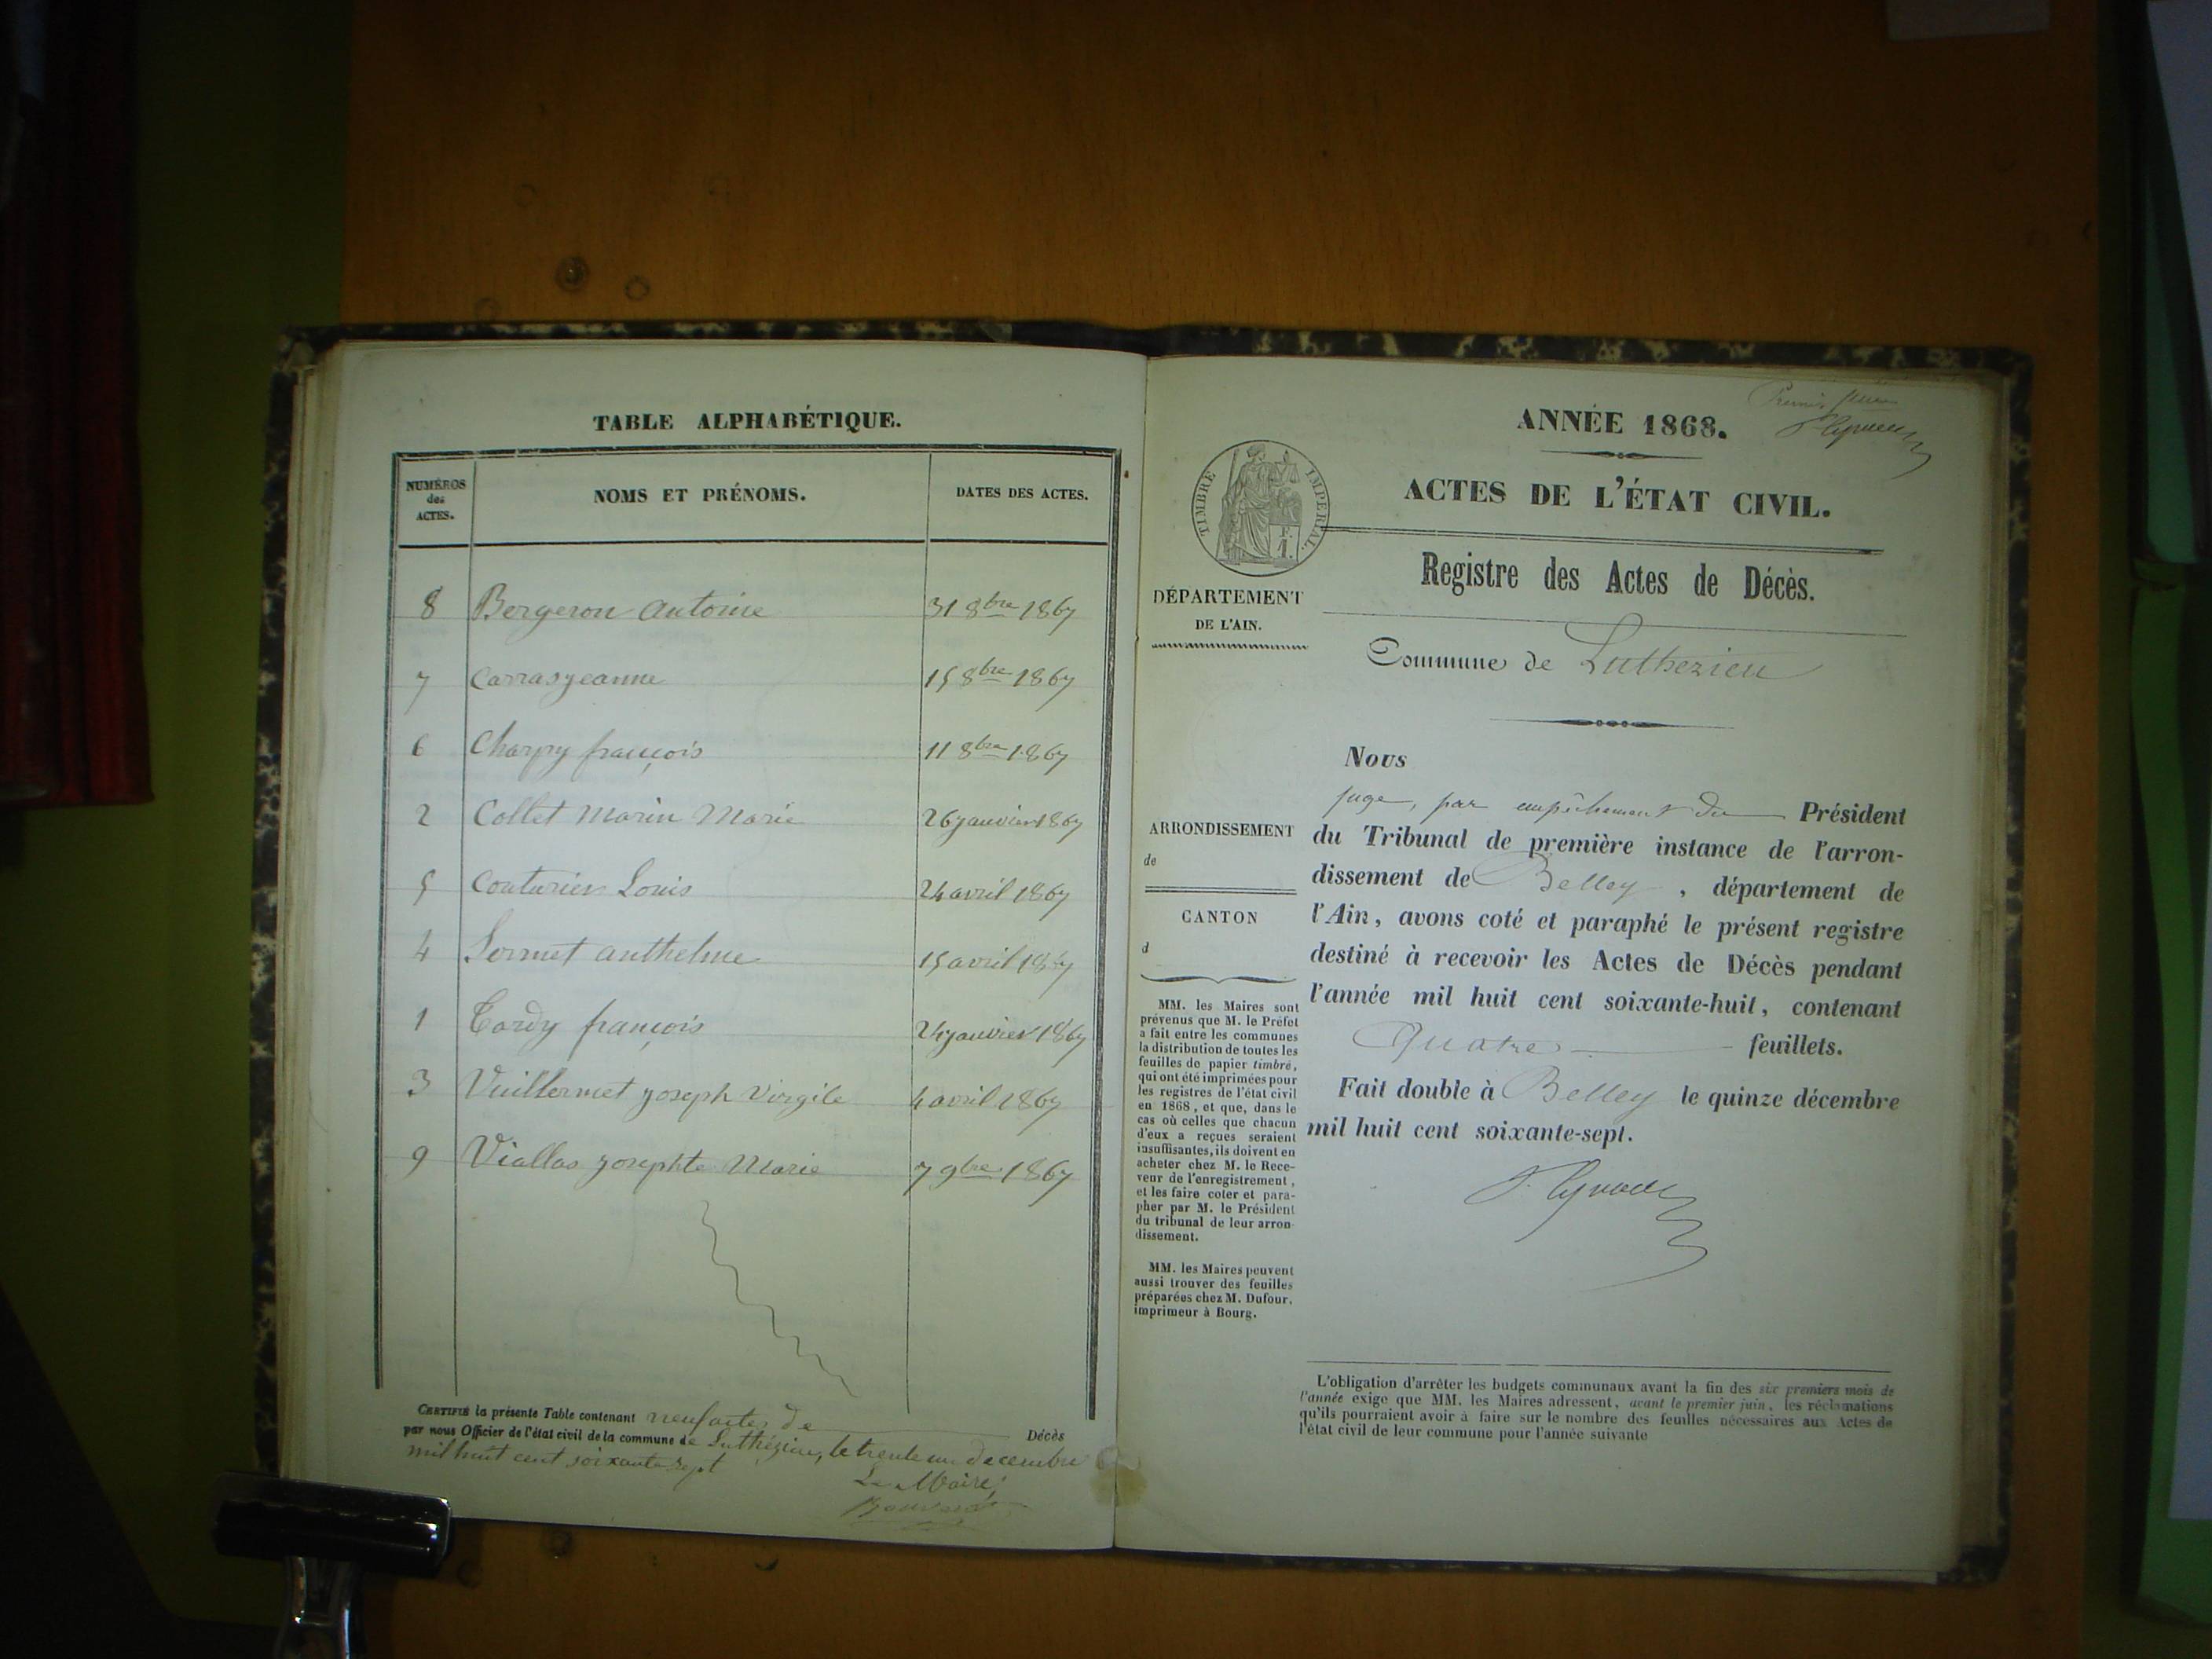 TABLE ALPHABÉTIQUE.
NUMÉROS des ACTES. NOMS ET PRÉNOMS. DATES DES ACTES.
8 Bergeron antoine 31 8bre 1867
7 Carrasjeanne 15 8bre 1867
6 Charpy françois 11 8bre 1867
2 Collet Marin Marie 26 janvier 1867
5 Couturier Louis 24 avril 1867
4 Sormet anthelme 15 avril 1867
1 Tardy françois 24 janvier 1867
3 Vuillermet joseph Virgile 4 avril 1867
9 Viallas josephte Marie 7 9bre 1867
CERTIFIÉ la présente Table contenant neuf actes de Décès
par nous Officier de l'état civil de la commune de Luthézieu, le trente un decembre
mil huit cent soixante sept
Le Maire,
ANNÉE 1868.
ACTES DE L'ÉTAT CIVIL.
TIMBRE IMPERIAL.
Registre des Actes de Décès.
DÉPARTEMENT
DE L'AIN.
Commune de Luthezieu
Nous
juge, par empêchement du Président
du Tribunal de première instance de l'arron-
dissement de Belley, département de
l'Ain, avons coté et paraphé le présent registre
destiné à recevoir les Actes de Décès pendant
l'année mil huit cent soixante-huit, contenant
Quatre feuillets.
Fait double à Belley le quinze décembre
mil huit cent soixante-sept.
ARRONDISSEMENT
de
CANTON
d
MM. les Maires sont
prévenus que M. le Préfet
a fait entre les communes
la distribution de toutes les
feuilles de papier timbré,
qui ont été imprimées pour
les registres de l'état civil
en 1868, et que, dans le
cas où celles que chacun
d'eux a reçues seraient
insuffisantes, ils doivent en
acheter chez M. le Rece-
veur de l'enregistrement,
et les faire coter et para-
pher par M. le Président
du tribunal de leur arron-
dissement.
MM. les Maires peuvent
aussi trouver des feuilles
préparées chez M. Dufour,
imprimeur à Bourg.
L'obligation d'arrêter les budgets communaux avant la fin des six premiers mois de
l'année exige que MM. les Maires adressent, avant le premier juin, les réclamations
qu'ils pourraient avoir à faire sur le nombre des feuilles nécessaires aux Actes de
l'état civil de leur commune pour l'année suivante